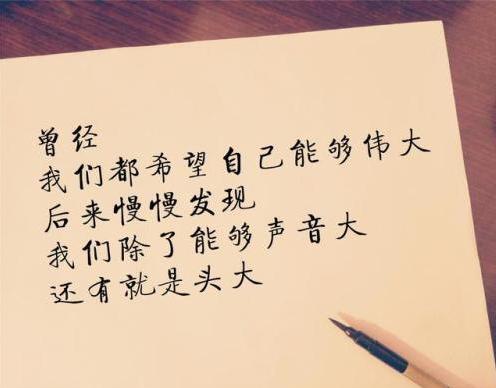 曾经
我们都希望自己能够伟大
后来慢慢发现
我们除了能够声音大
还有就是头大